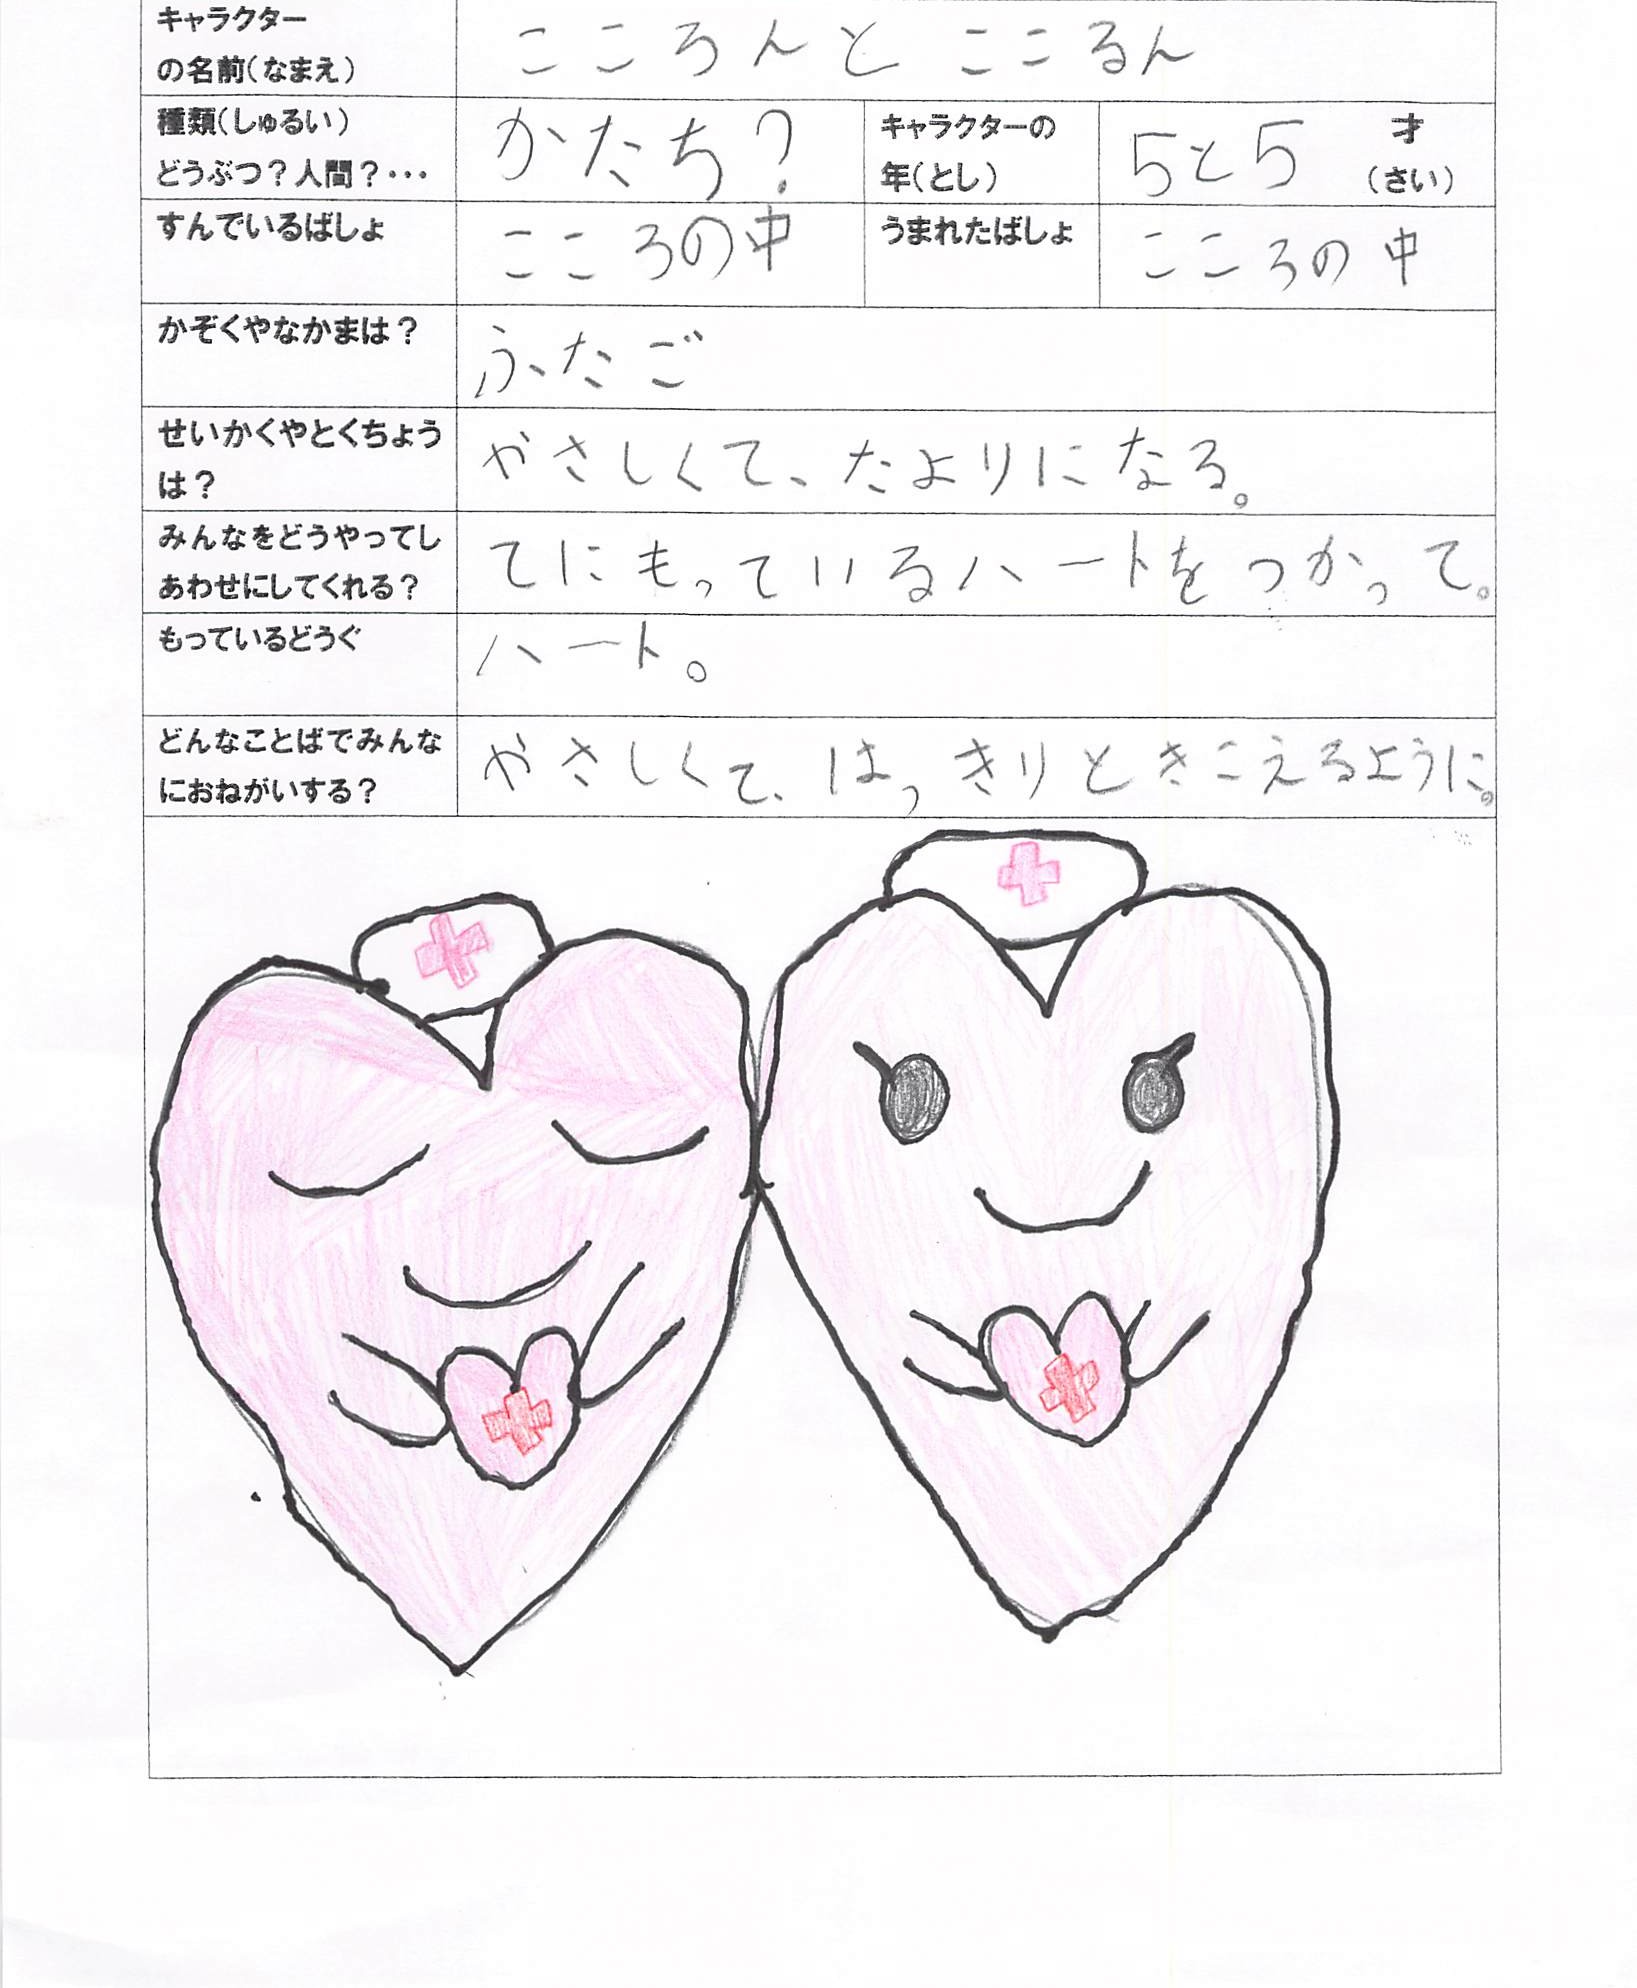 キャラクター
の名前(なまえ)
こころんと こころん
種類(しゅるい)
どうぶつ?人間?・・・
かたち?
キャラクターの
年(とし)
5と5
才
(さい)
すんでいるばしょ
こころの中
うまれたばしょ
こころの中
かぞくやなかまは?
ふたご
せいかくやとくちょう
は?
やさしくて、たよりになる。
みんなをどうやってし
あわせにしてくれる?
てにもっているハートをつかって。
もっているどうぐ
ハート。
どんなことばでみんな
におねがいする?
やさしくて、はっきりときこえるように。